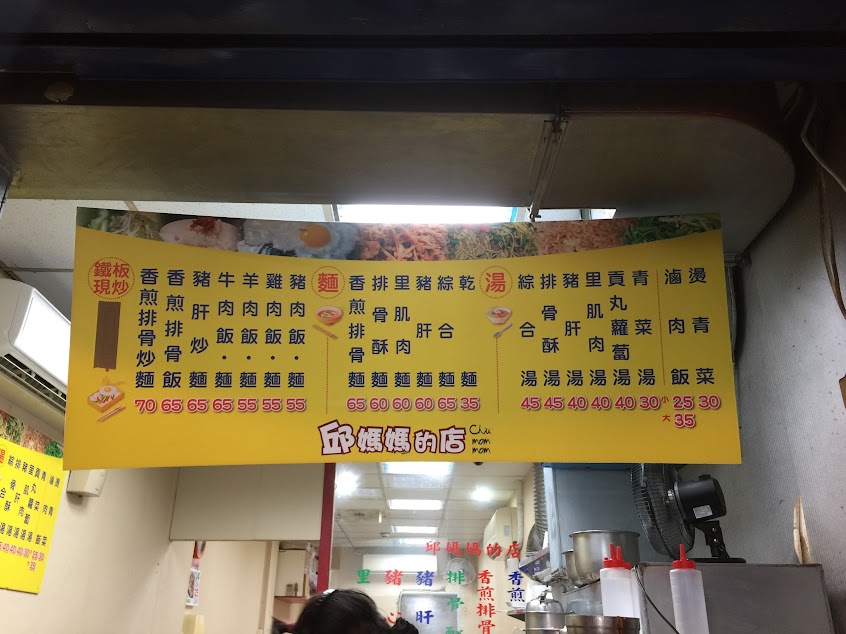 鐵板現炒
香煎排骨炒麵 70
香煎排骨飯 65
豬肝炒麵 65
牛肉飯・麵 65
羊肉飯・麵 55
雞肉飯・麵 55
豬肉飯・麵 55
麵
香煎排骨麵 65
排骨酥麵 60
里肌肉麵 60
豬肝麵 60
綜合麵 65
乾麵 35
湯
綜合湯 45
排骨酥湯 45
豬肝湯 40
里肌肉湯 40
貢丸蘿蔔湯 40
青菜湯 30
滷肉飯 小25 大35
燙青菜 30
邱媽媽的店 Chu mom mom
湯
綜合湯
排骨酥湯
豬肝湯
里肌肉湯
貢丸蘿蔔湯
青菜湯 30
滷肉飯 25 35
燙青菜 30
邱媽媽的店
里
豬心
豬肝
排骨
香煎排骨
香煎